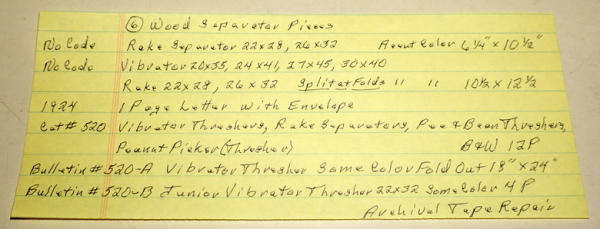 ⑥ Wood Separator Pieces
No Code Rake Separator 22x28, 26x32 Accent Color 6¼" x 10½"
No Code Vibrator 20x35, 24x41, 27x45, 30x40
Rake 22x28, 26x32 Split at Folds " " 10½ x 12½
1924 1 Page Letter with Envelope
Cat # 520 Vibrator Threshers, Rake Separators, Pea & Bean Threshers,
Peanut Picker (Thresher) B&W 12P
Bulletin # 520-A Vibrator Thresher Some Color Fold Out 18" x 24"
Bulletin # 520-B Junior Vibrator Thresher 22x32 Some Color 4P
Archival Tape Repair